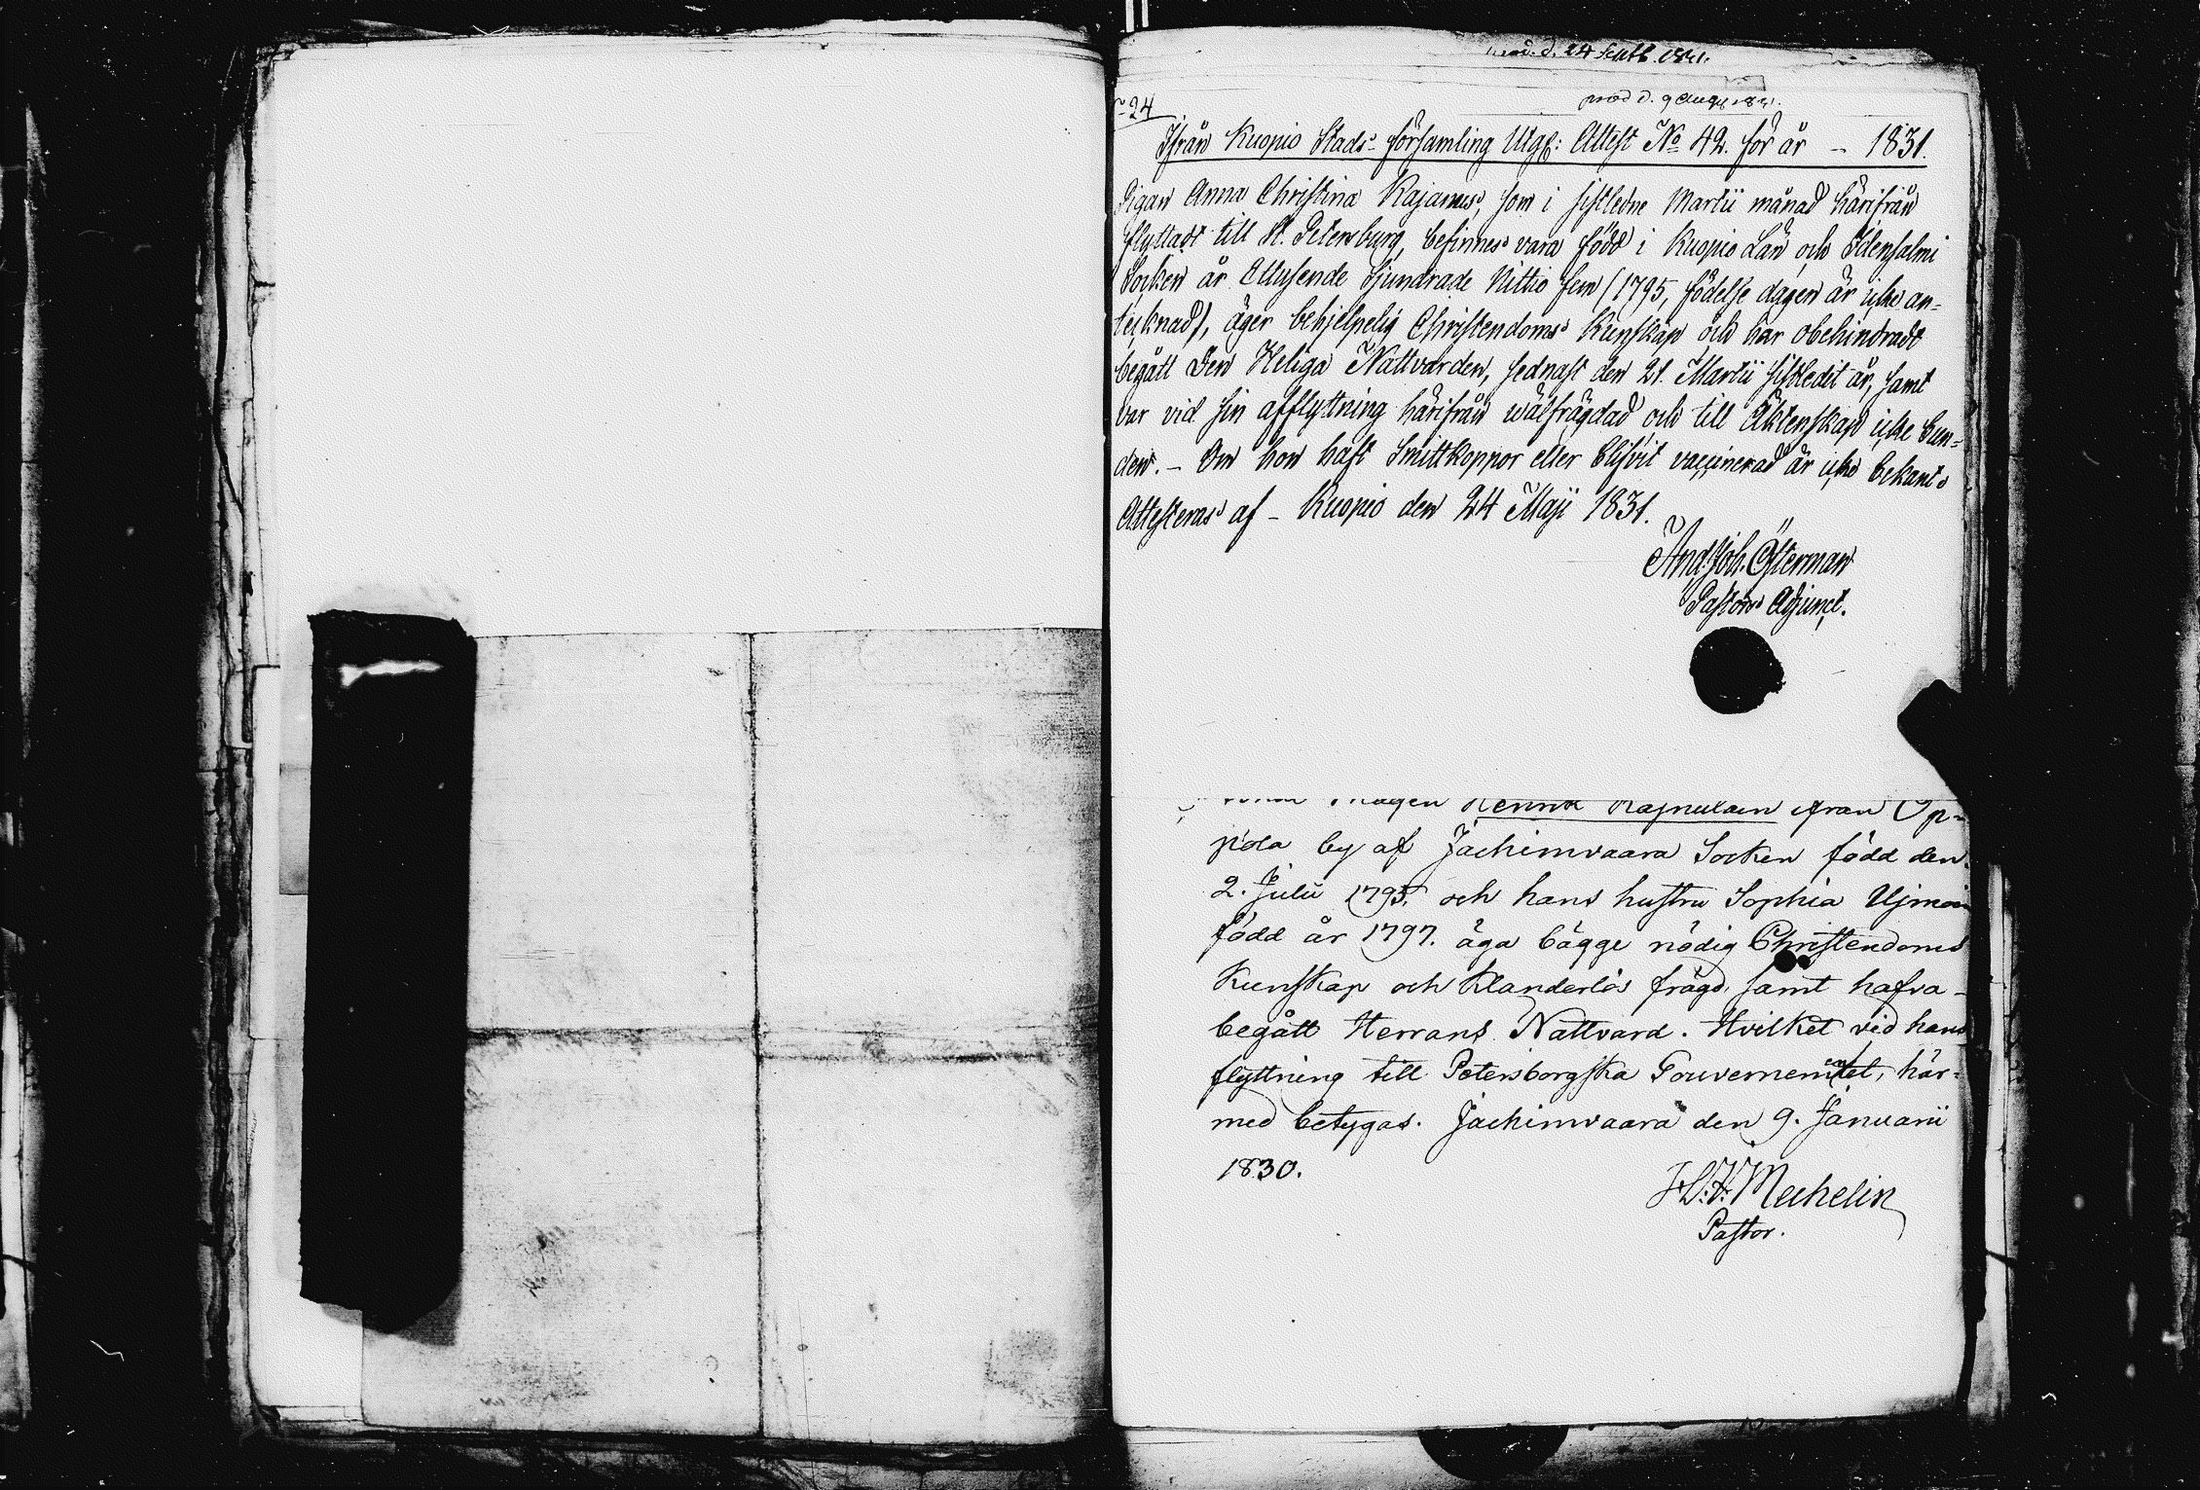 prod. d. 24 Septb. 1831.
prod d. 9 Aug 1831.
N 24
Ifrån Kuopio Stads-församling Utgf: Attest No 42. för år - 1831.
Pigan Anna Christina Kajanus, som i sistledne Martii månad härifrån
flyttadt till St. Petersburg, befinnes vara född i Kuopio Län och Idensalmi
Socken år Ettusende Sjundrade Nittio fem (1795, födelse dagen är icke an-
tecknad), äger behjelpelig Christendoms Kunskap och har obehindradt
begått Den Heliga Nattvarden, sednast den 21. Martii sistledit år, samt
var vid sin afflyttning härifrån wälfrägdad och till Äktenskap icke bun-
den. - Om hon haft Smittkoppor eller blifvit vaccinerad är icke bekant.
Attesteras af - Kuopio den 24 Maji 1831.
And. Joh. Österman
Pastors Adjunct.
Henrik ifrån Op-
pola by af Jachimvaara Socken född den
2. Julii 1795. och hans hustru Sophia
född år 1797. äga bägge nödig Christendoms
Kunskap och Klanderlös frägd, samt hafva
begått Herrans Nattvard. Hvilket vid hans
flyttning till Petersborgska Gouvernementet, här-
med betygas. Jachimvaara den 9. Januarii
1830.
Mechelin
Pastor.